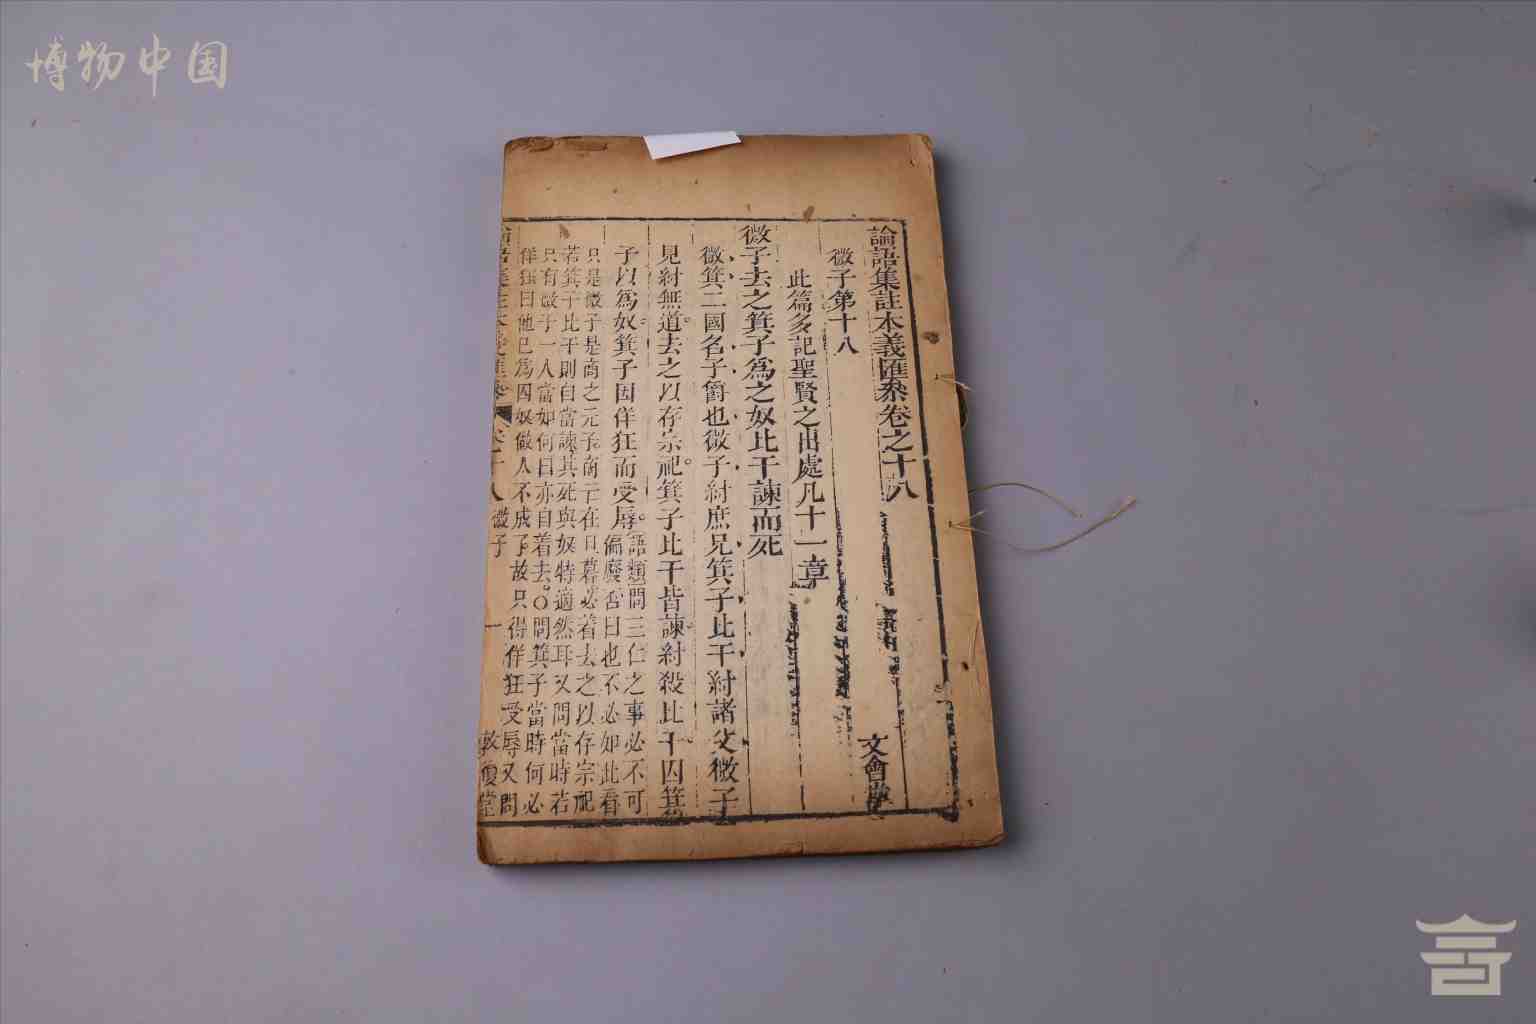 博物中国
論語集註本義匯叅卷之十八
文會堂
微子第十八
此篇多記聖賢之出處凡十一章
微子去之箕子爲之奴比干諫而死
微箕二國名子爵也微子紂庶兄箕子比干紂諸父微子
見紂無道去之以存宗祀箕子比干皆諫紂殺比干囚箕
子以爲奴箕子因佯狂而受辱
語類問三仁之事必不可
偏廢否曰也不必如此看
只是微子是商之元子商亡在旦暮必着去之以存宗祀
若箕子比干則自當諫其死與奴特適然耳又問當時若
只有微子一人當如何曰亦自着去○問箕子當時何必
佯狂曰他已爲囚奴做人不成了故只得佯狂受辱又問
卷十八 微子 一 敦復堂